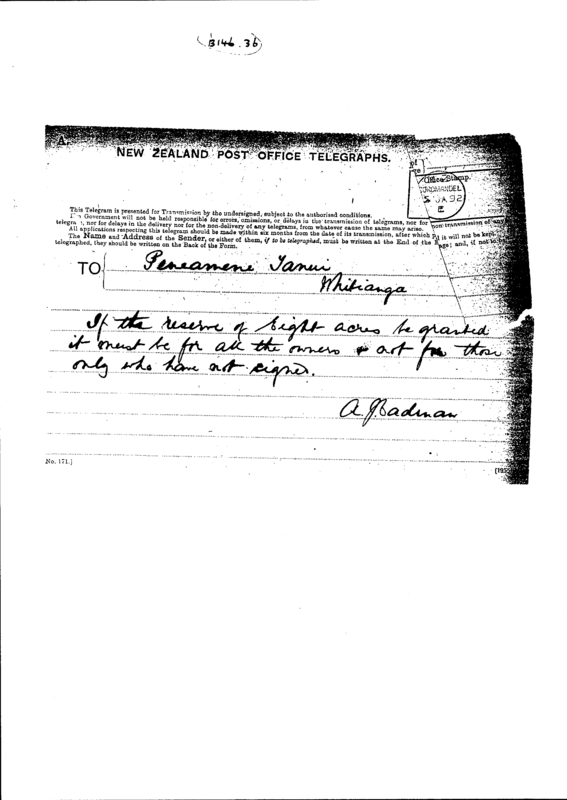 B146.36
A.
NEW ZEALAND POST OFFICE TELEGRAPHS.
Office Stamp.
COROMANDEL
5 JA 92
This Telegram is presented for Transmission by the undersigned, subject to the authorised conditions.
The Government will not be held responsible for errors, omissions, or delays in the transmission of telegrams, nor for non-transmission of any
telegram, nor for delays in the delivery nor for the non-delivery of any telegrams, from whatever cause the same may arise.
All applications respecting this telegram should be made within six months from the date of its transmission, after which it will not be kept.
The Name and Address of the Sender, or either of them, if to be telegraphed, must be written at the End of the Page; and, if not to be
telegraphed, they should be written on the Back of the Form.
TO Peneamene Tanui
Whitianga
If the reserve of Eight acres be granted
it must be for all the owners & not for those
only who have not signed.
A. J. Cadman
No. 171.]